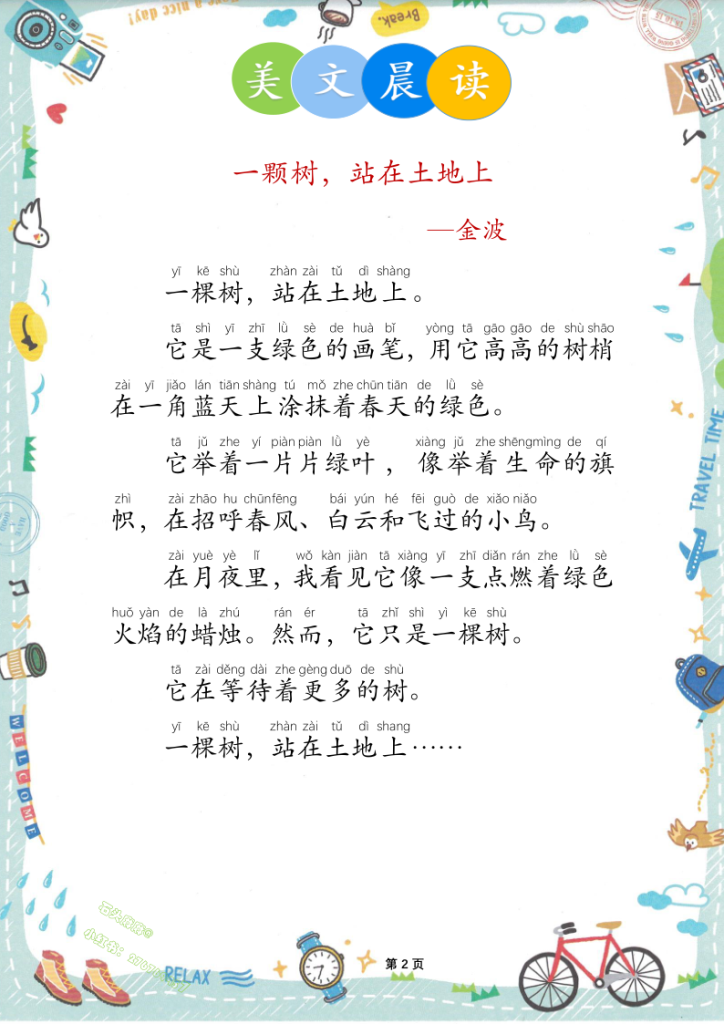 Have a nice day!
Break.
美文晨读
一颗树，站在土地上
—金波
yī kē shù zhàn zài tǔ dì shàng
一棵树，站在土地上。
tā shì yī zhī lǜ sè de huà bǐ yòng tā gāo gāo de shù shāo
它是一支绿色的画笔，用它高高的树梢
zài yī jiǎo lán tiān shàng tú mǒ zhe chūn tiān de lǜ sè
在一角蓝天上涂抹着春天的绿色。
tā jǔ zhe yí piàn piàn lǜ yè xiàng jǔ zhe shēng mìng de qí
它举着一片片绿叶，像举着生命的旗
zhì zài zhāo hu chūn fēng bái yún hé fēi guò de xiǎo niǎo
帜，在招呼春风、白云和飞过的小鸟。
zài yuè yè lǐ wǒ kàn jiàn tā xiàng yī zhī diǎn rán zhe lǜ sè
在月夜里，我看见它像一支点燃着绿色
huǒ yàn de là zhú rán ér tā zhǐ shì yì kē shù
火焰的蜡烛。然而，它只是一棵树。
tā zài děng dài zhe gèng duō de shù
它在等待着更多的树。
yī kē shù zhàn zài tǔ dì shang
一棵树，站在土地上……
TRAVEL TIME
WELCOME
RELAX
第 2 页